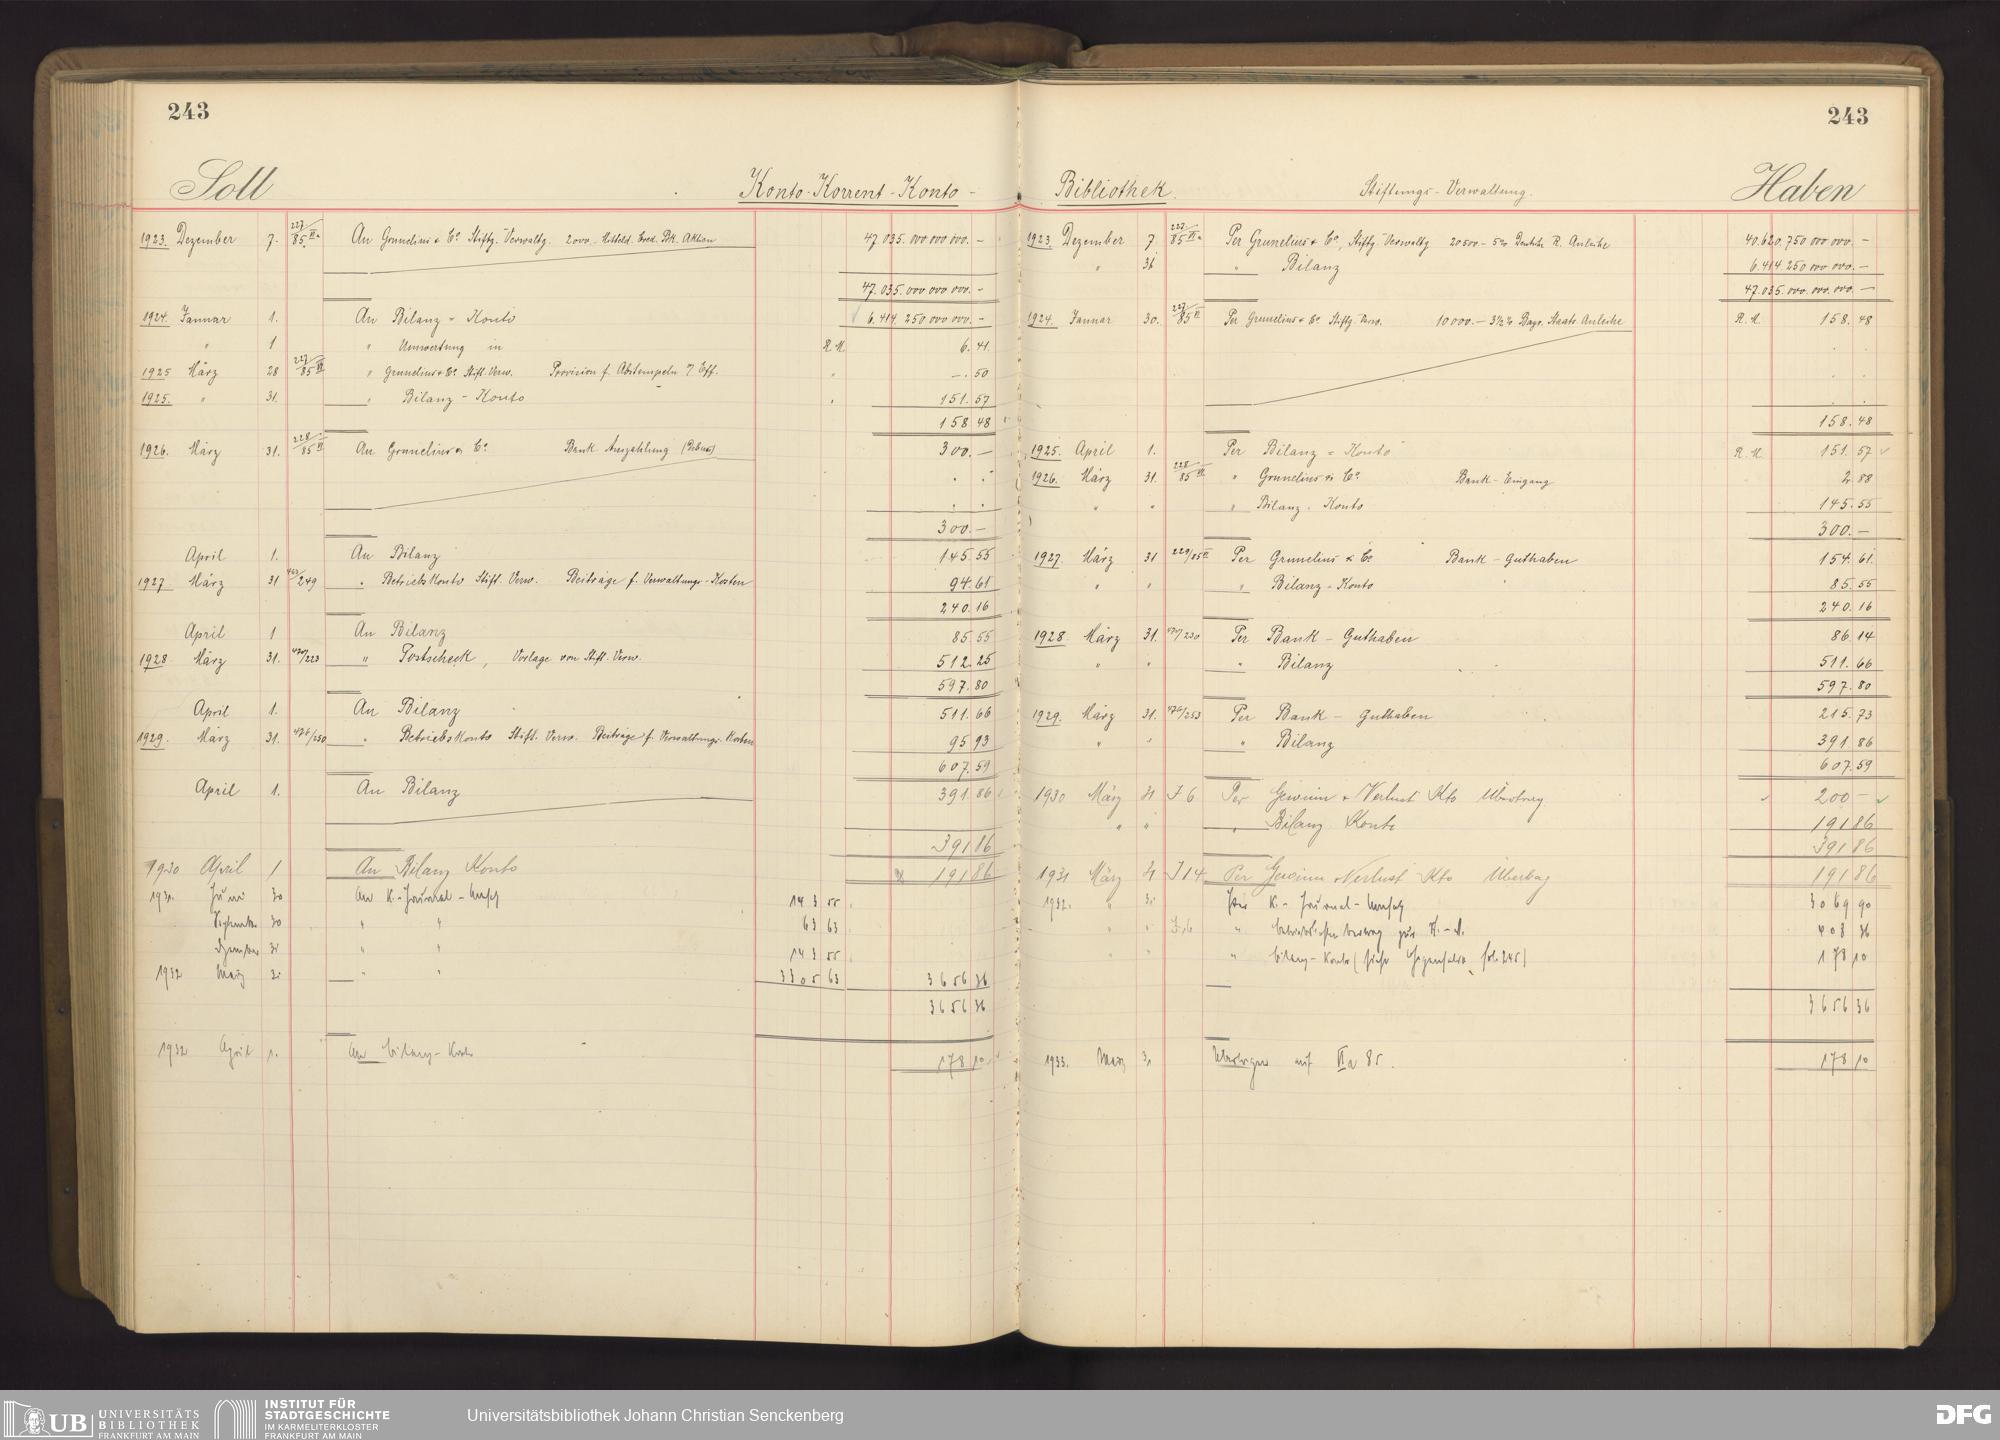 243
Soll Konto-Korrent-Konto -
1923. Dezember 7. 227/85 An Grunelius & Co. Stiftg. Verwaltg. 2000.- Mitteld. Cred. Bk. Aktien 47.035.000.000.000.-
47.035.000.000.000.-
1924. Januar 1. An Bilanz - Konto 6.414.250.000.000.-
" 1 " Umwertung in R.M. 6.41
1925 März 28 227/85 " Grunelius & Co. Stift. Verw. Provision f. Abstempeln 7 Eff. " -.50
1925. " 31. " Bilanz - Konto " 151.57
158 48
1926. März 31. 228/85 An Grunelius & Co. Bank Auszahlung 300.-
300.-
April 1. An Bilanz 145.55
1927. März 31 /249 " Betriebskonto Stift. Verw. Beiträge f. Verwaltungs-Kosten 94.61
240.16
April 1 An Bilanz 85.55
1928 März 31. /223 " Postscheck, Vorlage von Stift. Verw. 512.25
597.80
April 1. An Bilanz 511.66
1929. März 31. /250 " Betriebskonto Stift. Verw. Beiträge f. Verwaltungs-Kosten 95 93
607.59
April 1. An Bilanz 391.86
391 86
1930 April 1 An Bilanz Konto 191 86
1931. Juni 30 An K.-Journal-Umsatz 143 55
September 30 " " 63 63
Dezember 31 " " 143 55
1932 März 31 " " 3305 63 3656 36
3656 36
1932 April 1. An Bilanz-Konto 178 10
243
Bibliothek. Stiftungs-Verwaltung. Haben
1923 Dezember 7 227/85 Per Grunelius & Co., Stiftg. Verwaltg 20500.- 5% Deutsche R. Anleihe 40.620.750 000 000.-
" 31 " Bilanz 6.414.250 000 000.-
47.035.000.000.000.-
1924. Januar 30. 227/85 Per Grunelius & Co. Stiftg. Verw. 10000.- 3½% Bayr. Staats Anleihe R.M. 158.48
158.48
1925. April 1. Per Bilanz - Konto R.M. 151.57
1926. März 31. 228/85 " Grunelius & Co. Bank-Eingang 2.88
" " " Bilanz. Konto 145.55
300.-
1927. März 31 229/85 Per Grunelius & Co. Bank-Guthaben 154.61
" " " Bilanz-Konto 85.55
240.16
1928. März 31. /230 Per Bank-Guthaben 86.14
" " " Bilanz 511.66
597.80
1929. März 31. /253 Per Bank-Guthaben 215.73
" " " Bilanz 391.86
607.59
1930 März 31 J 6 Per Gewinn & Verlust Kto Übertrag 200 -
" " " Bilanz Konto 191 86
391 86
1931 März 31 J 14 Per Gewinn & Verlust Kto Übertrag 191 86
1932. " 31 Per K.-Journal-Umsatz 3069 90
" " " 408 36
" " " Bilanz-Konto (siehe fol. 245) 178 10
3656 36
1933. März 31 Übertragen auf VIa 85. 178 10
UB UNIVERSITÄTS
BIBLIOTHEK
FRANKFURT AM MAIN
INSTITUT FÜR
STADTGESCHICHTE
IM KARMELITERKLOSTER
FRANKFURT AM MAIN
Universitätsbibliothek Johann Christian Senckenberg
DFG